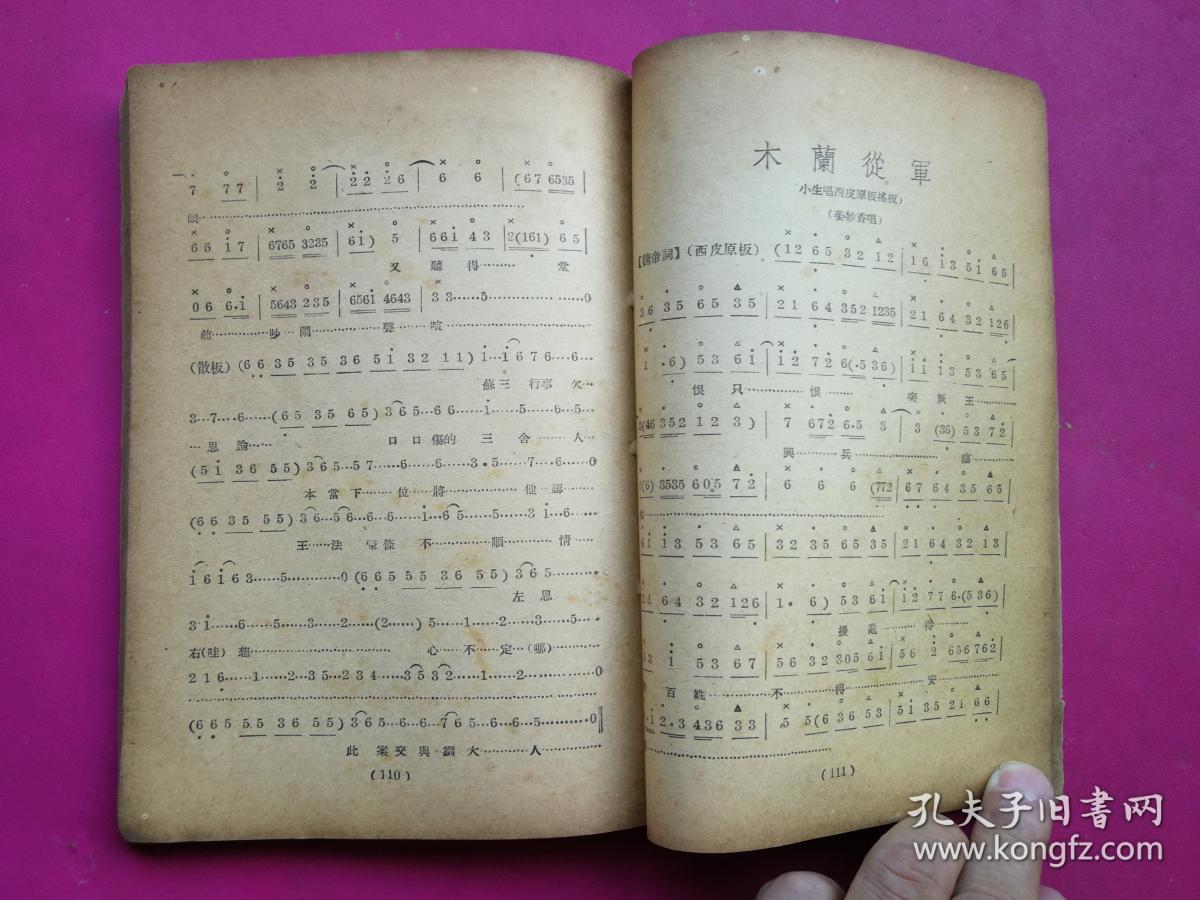 眼
7 77 | 2 2 | 22 26 | 6 6 | (67 6535
65 i7 | 6765 3235 | 6i) 5 | 66i 43 | 2(161) 65
又聽得 堂
06 6·i | 5643 235 | 656i 4643 | 33……5…………0
前 吵鬧 聲喧
(散板) (66 35 35 36 5i 32 11) i…i676…6…
蘇三 行事 欠
3…7…6……(65 35 65) 365…66……i……5……6…5…
思論 口口傷的 三舍 人
(5i 36 55) 365…57……6……6……3·5……7……6……0
本當下 位將 他認
(66 35 55) 36…56…6……6……i…65……5……3i…6……
王法 條不順 情
i6i63……5……0 (66 55 36 55) 365……
左思
3i……6……5……3……2……(2……)5……1……2……3…5……
右(哇)想 心不定(哪)
216……1……2…35…2…234……3532……1……2………0
(665 55 36 55) 365…6…6…765…6…6…5………0
此案交與劉大 人
(110)
木蘭從軍
小生唱西皮原板搖板)
(姜妙香唱)
【魏帝詞】(西皮原板) (12 65 32 12 | 16 i3 5i 65
36 35 65 35 | 21 64 352 1235 | 21 64 32 126
1 ·6) 53 6i | i2 726 6(·536) | ii i3 53 65
恨只 恨 突厥王
3(46 352 12 3) | 7 672 6·5 3 | 3 (36) 53 72
興兵
(6) 3535 605 72 | 6 6 6 (772 | 67 64 35 65
6i i3 53 65 | 32 35 65 35 | 21 64 32 13
21 64 32 126 | 1· 6) 53 6i | i2 77 6·(536)
擾亂 得
53 i 53 67 | 56 32 305 6i | 56 2 656 762
百姓 不得安
·i 2·3 436 33 | 5 5(6 36 53 | 5i 35 21 66
(111)
孔夫子旧書网
www.kongfz.com